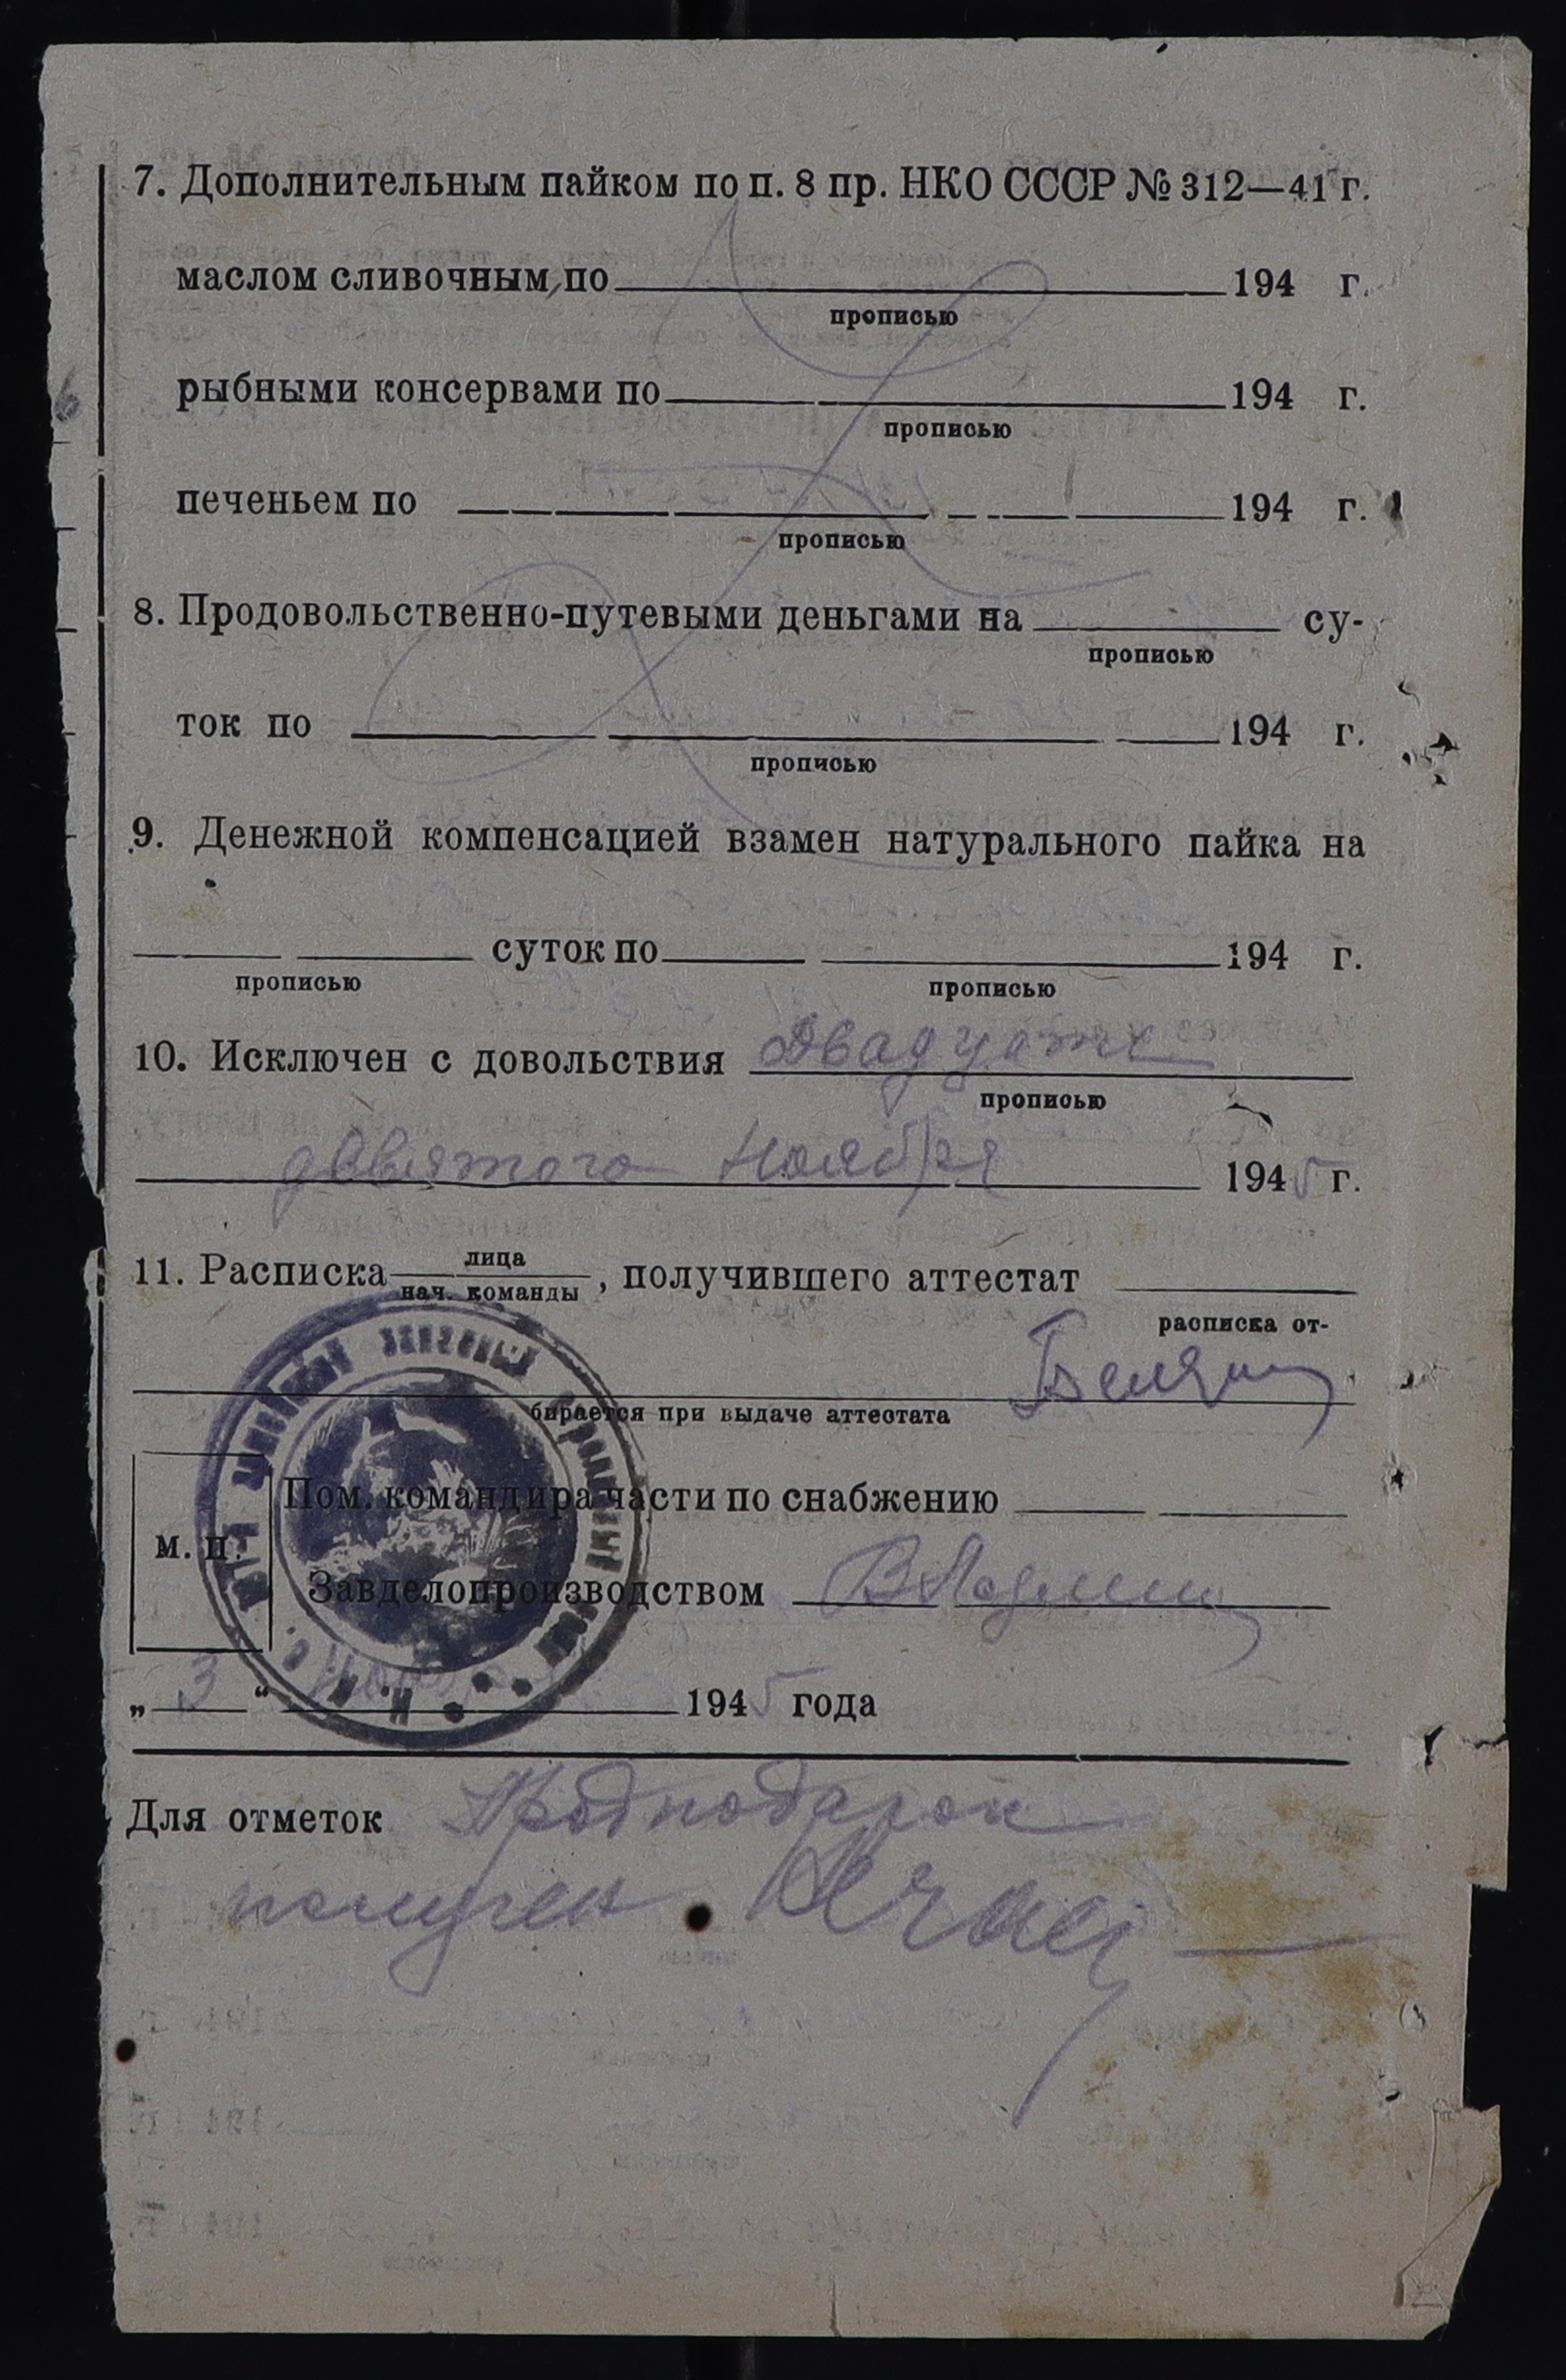 7. Дополнительным пайком по п. 8 пр. НКО СССР № 312—41 г.
маслом сливочным, по 194 г.
прописью
рыбными консервами по 194 г.
прописью
печеньем по 194 г.
прописью
8. Продовольственно-путевыми деньгами на су-
прописью
ток по 194 г.
прописью
9. Денежной компенсацией взамен натурального пайка на
суток по 194 г.
прописью прописью
10. Исключен с довольствия Двадцать
прописью
девятого Ноября 1945 г.
11. Расписка лица
нач. команды , получившего аттестат
расписка от-
бирается при выдаче аттестата
Пом. командира части по снабжению
м. п.
Завделопроизводством
„3“ 1945 года
Для отметок Продподарок
получен.